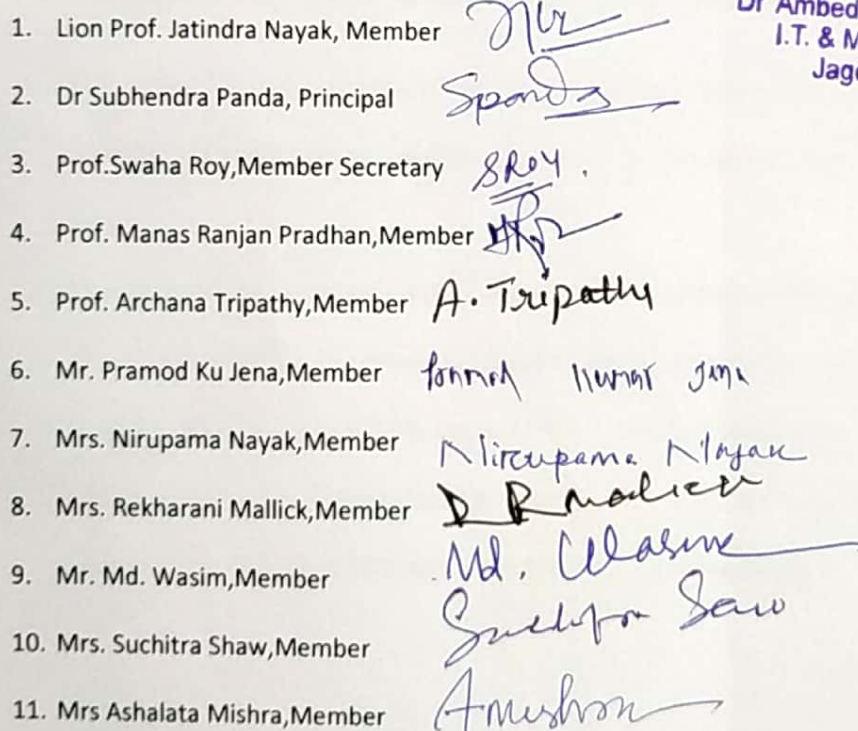 Dr Ambed
I.T. & M
Jag
1. Lion Prof. Jatindra Nayak, Member
2. Dr Subhendra Panda, Principal Spanda
3. Prof.Swaha Roy,Member Secretary SROY.
4. Prof. Manas Ranjan Pradhan,Member
5. Prof. Archana Tripathy,Member A. Tripathy
6. Mr. Pramod Ku Jena,Member Kumar Jena
7. Mrs. Nirupama Nayak,Member Nirupama Nayak
8. Mrs. Rekharani Mallick,Member
9. Mr. Md. Wasim,Member Md. Wasim
10. Mrs. Suchitra Shaw,Member
11. Mrs Ashalata Mishra,Member